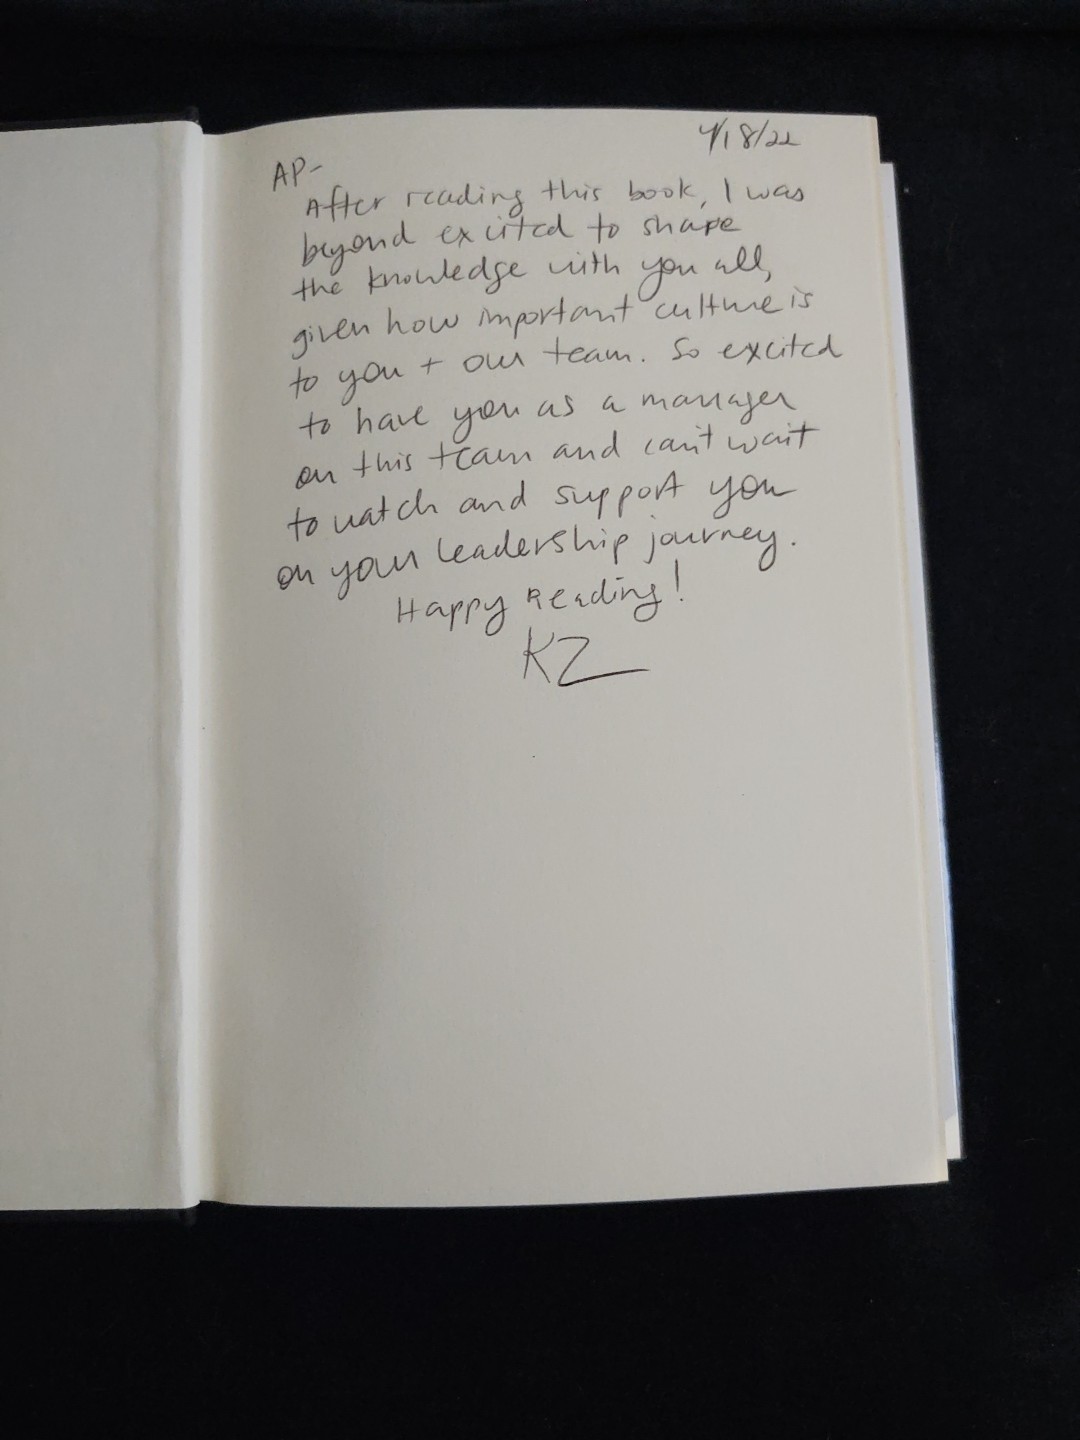 4/18/22
AP-
After reading this book, I was
beyond excited to shape
the knowledge with you all,
given how important culture is
to you + our team. So excited
to have you as a manager
on this team and can't wait
to watch and support you
on your leadership journey.
Happy Reading!
KZ